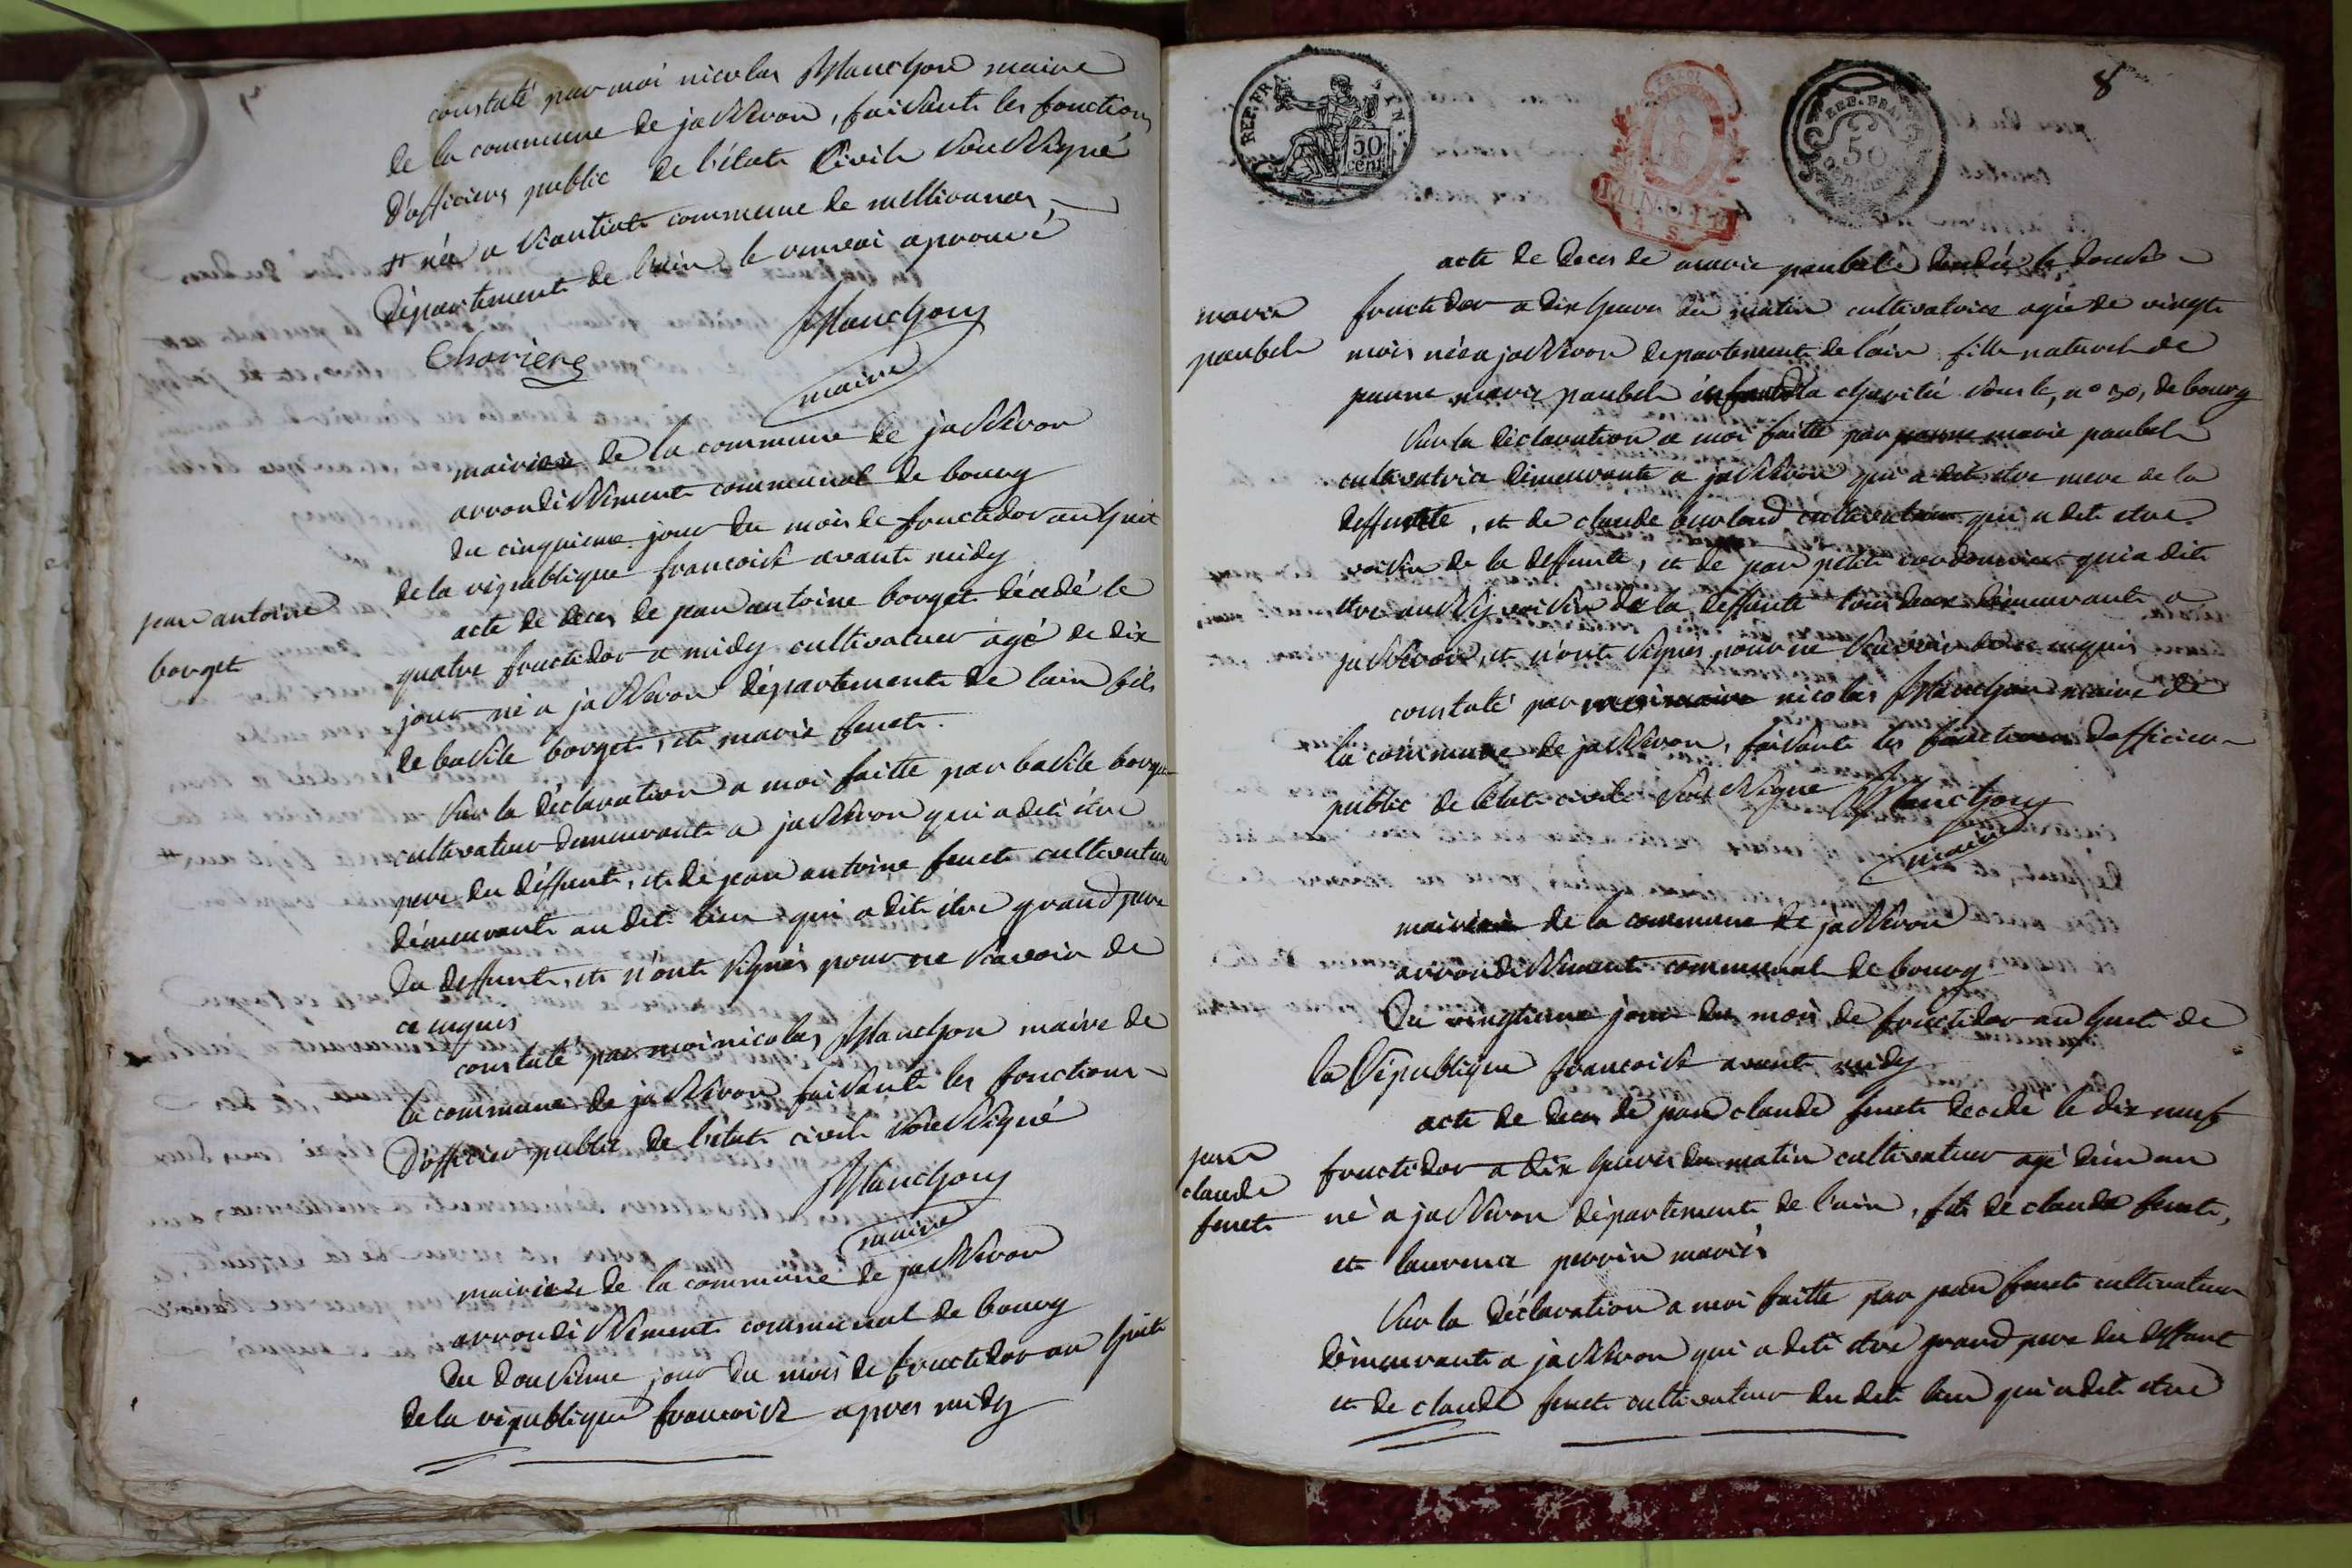 constaté par moi nicolas Manchon maire
de la commune de jasseron, faisant les fonctions
d'officiers public de l'état Civil Soussigné
née a commune de
département de l'ain le renvoi aprouvé
Manchon
Chariere
maire
mairie de la commune de jasseron
arrondissement communal de bourg
du cinquieme jour du mois de fructidor an huit
de la republique francoise avant midy
jean antoine
borget
acte de deces de jean antoine borget décédé le
quatre fructidor a midy cultivateur agé de dix
jour né a jasseron département de lain fils
de basile borget, et marie feuet
Sur la déclaration a moi faitte par basile borget
cultivateur demeurant a jasseron qui a dit être
pere du déffunt, et de jean antoine feuet cultivateur
démeurant au dit lieu qui a dit être grand pere
du deffunt, et n'ont signés pour ne scavoir de
ce enquis
constaté par moi nicolas Manchon maire de
la commune de jasseron faisant les fonctions
d'officier public de l'état civil soussigné
Manchon
maire
mairie de la commune de jasseron
arrondissement communal de bourg
du douzieme jour du mois de fructidor an huit
de la république francoise apres midy
REP. FRA.
50
cent.
MINUTE
REP. FRA.
50
8
acte de deces de marie paubel décédée le douze
marie
paubel
fructidor a dix heures du matin cultivatrice agée de vingt
mois née a jasseron departement de l'ain fille naturel de
jeanne marie paubel la charité sous le, n° 30, de bourg
Sur la déclaration a moi faitte par jeanne marie paubel
cultivatrice demeurante a jasseron qui a dit etre mere de la
deffunte, et de claude cultivateur qui a dit etre
voisin de la deffunte, et de jean petit cordonnier qui a dit
etre aussy voisin de la deffunte tous deux démeurant a
jasseron, et n'ont signés pour ne scavoir de ce enquis
constaté par nicolas Manchon maire de
la commune de jasseron, faisant les fonctions d'officier
public de l'état civil soussigné Manchon
maire
mairie de la commune de jasseron
arrondissement communal de bourg
Du vingtieme jour du mois de fructidor an huit de
la République francoise avant midy
acte de deces de jean claude feuet decedé le dix neuf
jean
claude
feuet
fructidor a dix heures du matin cultivateur agé d'un an
né a jasseron département de l'ain, fils de claude feuet,
et laurence perrin mariés
Sur la déclaration a moi faitte par jean feuet cultivateur
démeurant a jasseron qui a dit etre grand pere du deffunt
et de claude feuet cultivateur du dit lieu qui a dit etre